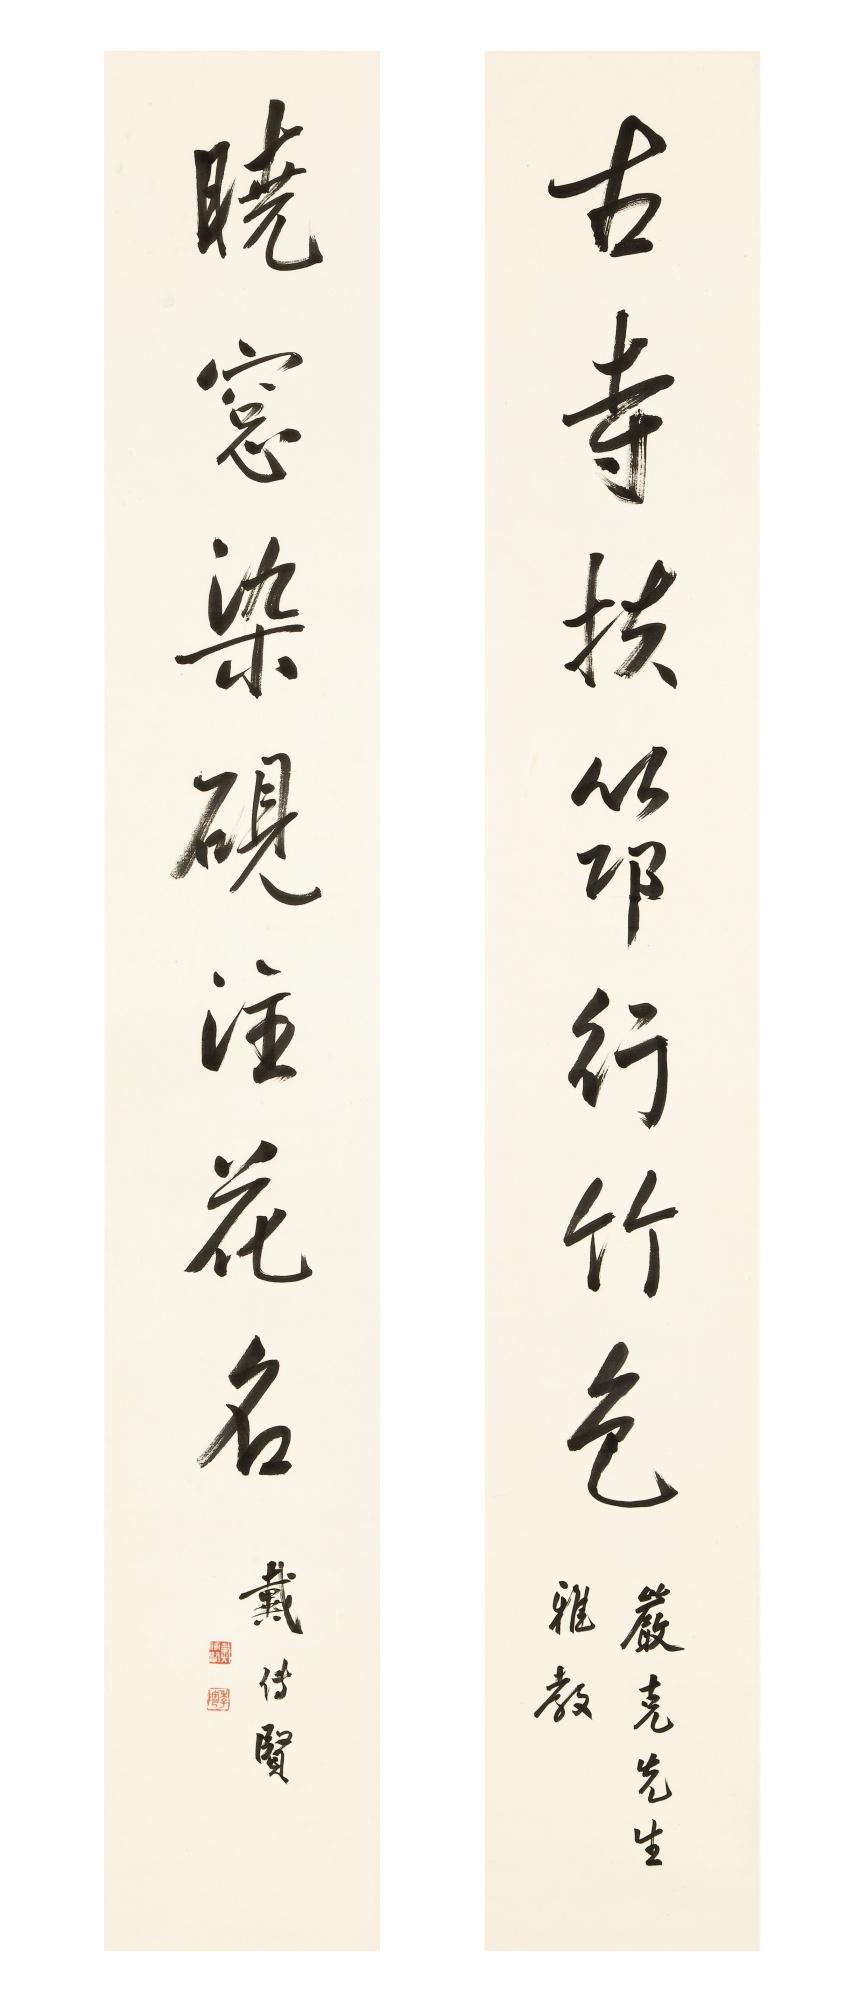 古寺扶筇行竹色
嚴克先生
雅教
曉窓染硯注花名
戴傳賢